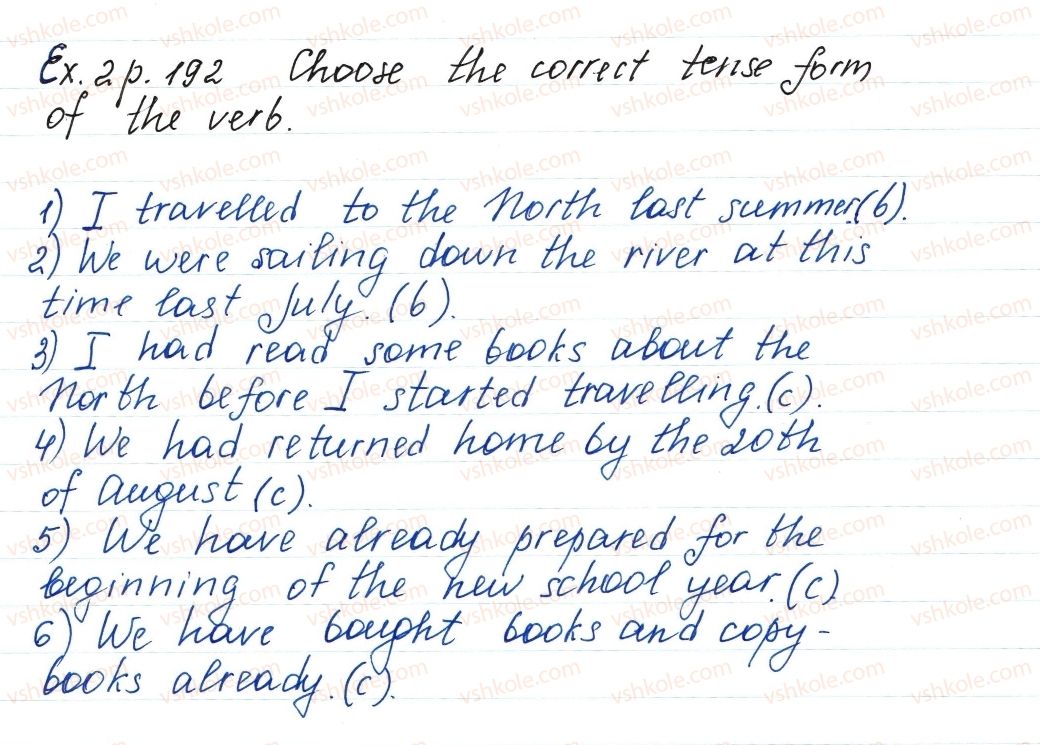 Ex. 2 p. 192 Choose the correct tense form
of the verb.
1) I travelled to the North last summer (b).
2) We were sailing down the river at this
time last July. (b).
3) I had read some books about the
North before I started travelling. (c).
4) We had returned home by the 20th
of August (c).
5) We have already prepared for the
beginning of the new school year. (c)
6) We have bought books and copy-
books already. (c).